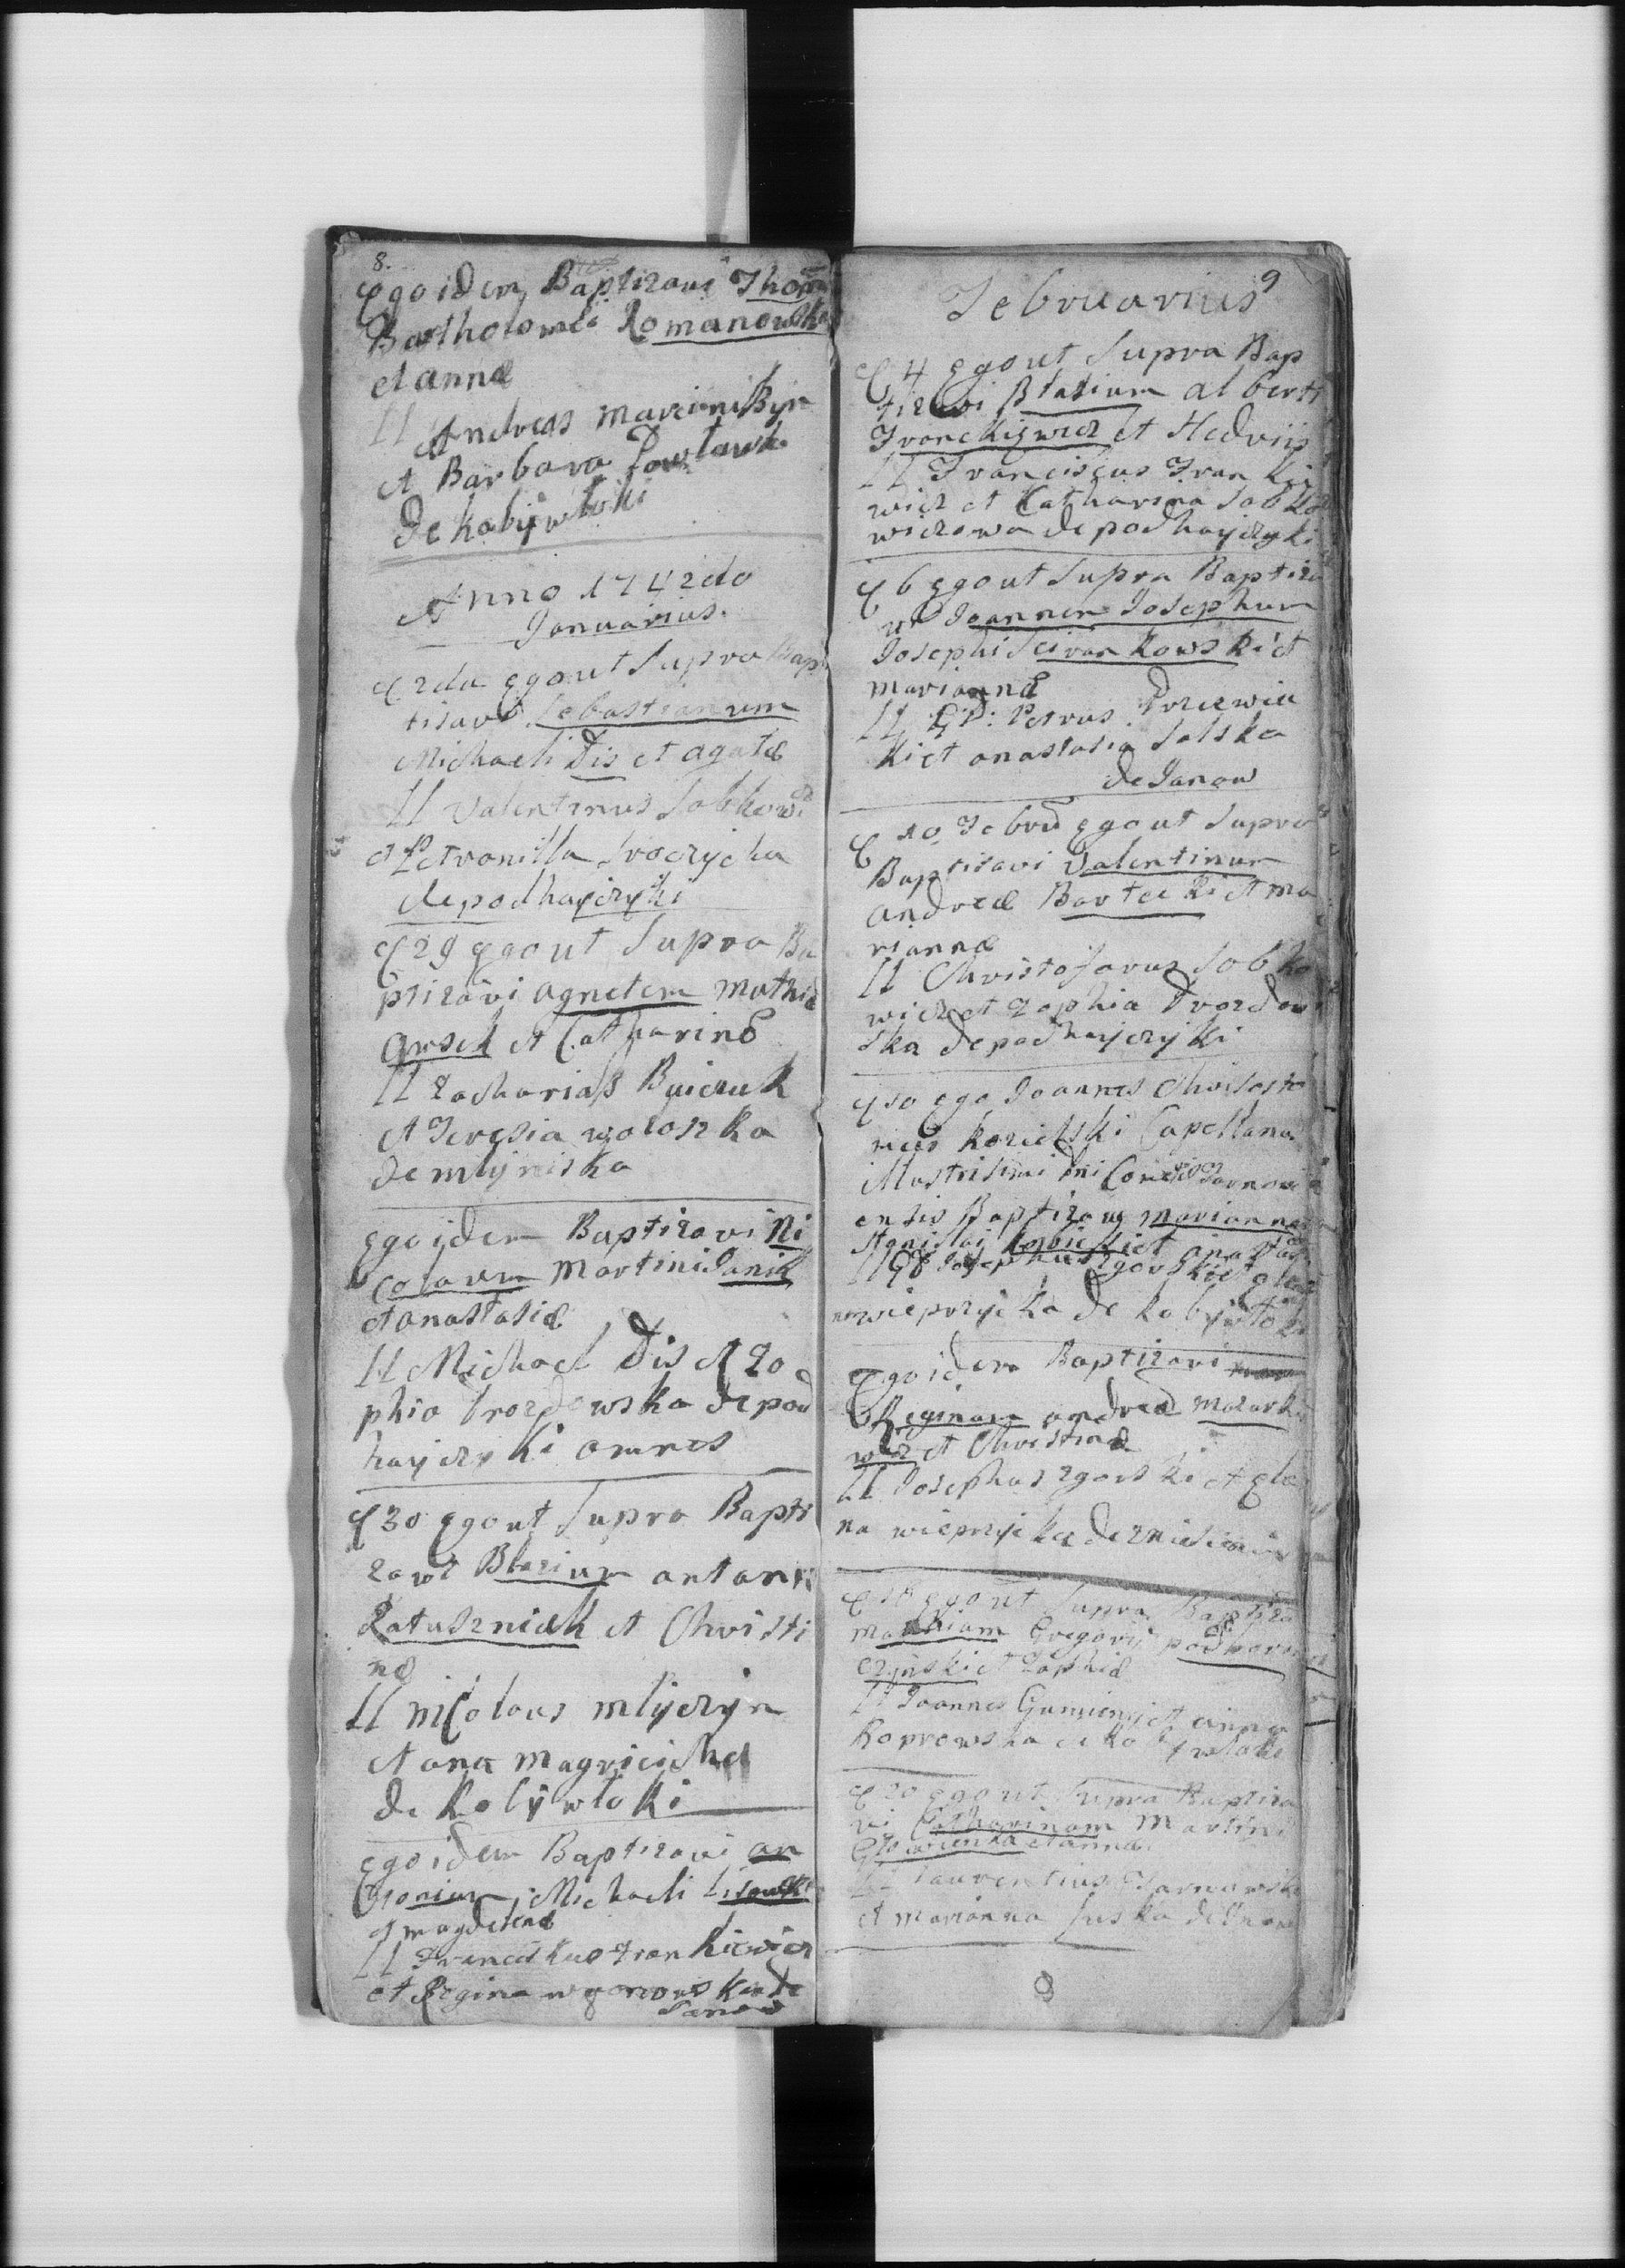 8.
Ego idem Baptizavi Thom
Bartholomei Romanowski
et annæ
LL Andreas marcini Byn
et Barbara Pawlowsk
de kobyiwłoki
Anno 1742do
Januarius.
C 2da Ego ut Supra Bap
tisavi Sebastianum
Michaeli Dis et agatæ
LL Valentinus Sobkowi
et Petronilla
de podhayczyki
C 29 Ego ut Supra Ba
ptizavi agnetem Mathiæ
et Catharinæ
LL Zacharias Buiczuk
et Teresia wołoszka
de mlyniska
Ego idem Baptizavi Ni
colaum Martini Panik
et anastasiæ
LL Michael Dis et Zo
phia Drozdowska de pod
hayczyki omnes
C 30 Ego ut Supra Bapti
zavi Blazium antoni
Ratuszniak et Christi
næ
LL nicolaus mlyczyn
et ana
de Kobyiwłoki
Ego idem Baptizavi an
tonium Michaeli Lisowski
et magdelenæ
LL Franciskus Frankiewicz
et Regina de
Janow
9
Februarius
C 4 Ego ut Supra Bap
tizavi Blasium alberti
Franckiywicz et Hedviis
LL Franciscus Frankie
wicz et Catharina Sobko
wiczowa de podhayczyki
C 6 Ego ut Supra Baptiza
vi Joannem Josephum
Josephi Sciwankowski et
mariannæ
LL GD: Petrus Drzewic
ki et anastasia Salska
de Janow
C 10 Febru Ego ut Supra
Baptisavi Valentinum
andreæ Bartecki et ma
riannæ
LL Christoforus Sobko
wicz et Zophia Drozdow
ska de podhayczyki
C 10 Ego Joannes Chrisosto
mus Kozielski Capellanus
illustrisimi
ensis Baptizavi mariannam
Stanislai et anastasi
LL GD Josephus Zgorski et elen
na wieprzycka de kobyiwłoki
Ego idem Baptizavi
Reginam andreæ Mazurki
wicz et Christinæ
LL Josephus Zgorski et Ele
na wieprzycka de
C 18 Ego ut Supra Baptiza
Mathiam Gregorij podhoro
czynski et Zophiæ
LL Joannes Gumieny et anna
Koprowska de Kobyiwłoki
C 20 Ego ut Supra Baptiza
vi Catharinam Martini
et annæ
LL Laurentius Czarnowski
et Marianna de Janow
9